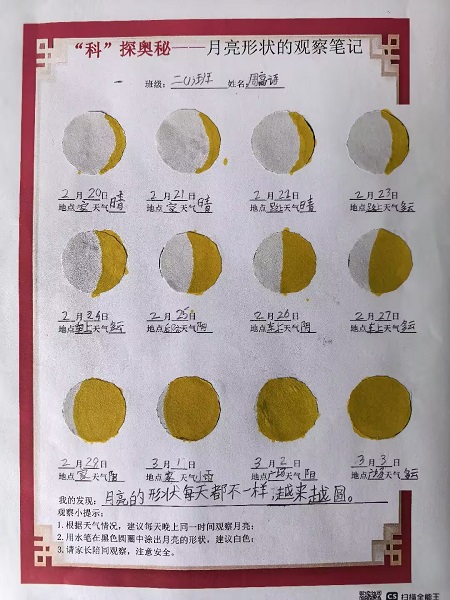 “科”探奥秘——月亮形状的观察笔记
班级: 二(1)班 姓名:
2月20日 2月21日 2月22日 2月23日
地点 家 天气 晴 地点 家 天气 晴 地点 路上 天气 晴 地点 路上 天气 多云
2月24日 2月25日 2月26日 2月27日
地点 天气 多云 地点 天气 阴 地点 车上 天气 阴 地点 车上 天气 多云
2月29日 3月1日 3月2日 3月3日
地点 家 天气 阴 地点 家 天气 小雨 地点 广场 天气 阴 地点 天气 多云
我的发现: 月亮的形状每天都不一样,越来越圆。
观察小提示:
1.根据天气情况,建议每天晚上同一时间观察月亮;
2.用水笔在黑色圆圈中涂出月亮的形状,建议白色;
3.请家长陪同观察,注意安全。
CS 扫描全能王